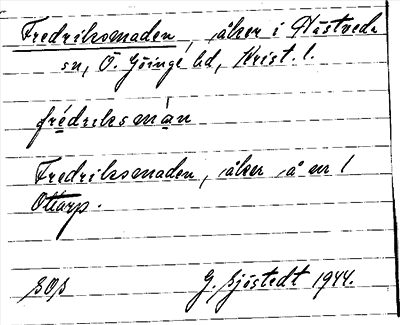 Fredriksmaden, åker i Glästveda
sn, Ö. Göinge hd, Krist. l.
frédriksmán
Fredriksmaden, åker å nr 1
Ottarp.
SOS G. Sjöstedt 1944.